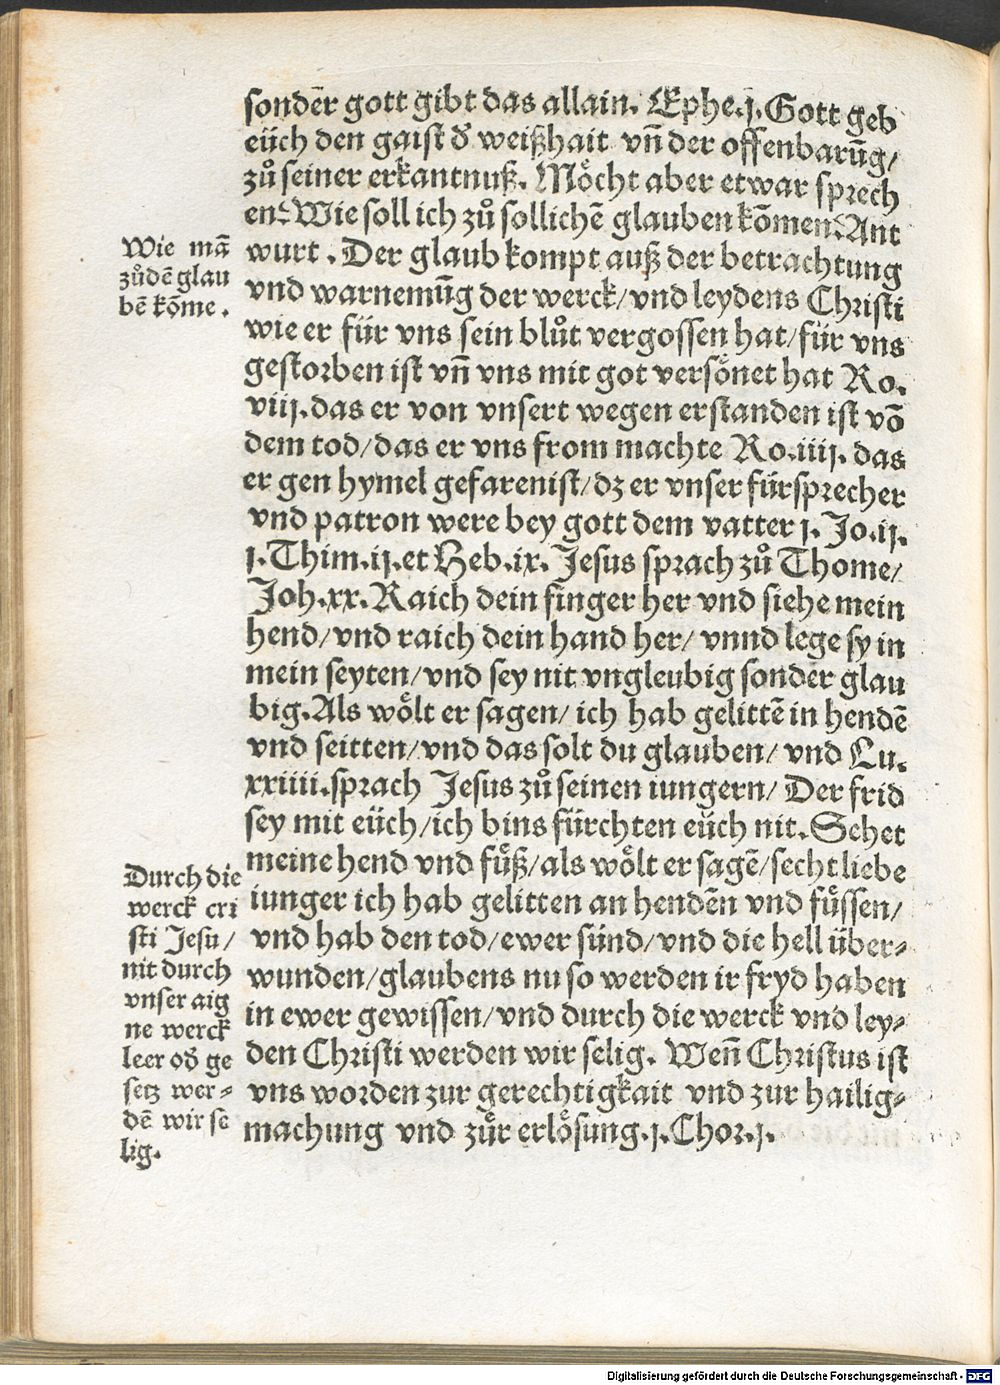 sonder̄ gott gibt das allain. Ephe.j. Gott geb
eüch den gaist d̕ weißhait vn̄ der offenbarūg/
zů seiner erkantnuß. Möcht aber etwar sprech
en? Wie soll ich zů sollichē glauben kōmen? Ant
wurt. Der glaub kompt auß der betrachtung
vnd warnemūg der werck/ vnd leydens Christi
wie er für vns sein blůt vergossen hat/ für vns
gestorben ist vn̄ vns mit got versönet hat Ro.
viij. das er von vnsert wegen erstanden ist vō
dem tod/ das er vns from machte Ro.iiij. das
er gen hymel gefarenist/ dz er vnser fürsprecher
vnd patron were bey gott dem vatter j. Jo.ij.
j. Thim.ij. et Heb.ix. Jesus sprach zů Thome/
Joh.xx. Raich dein finger her vnd siehe mein
hend/ vnd raich dein hand her/ vnnd lege sy in
mein seyten/ vnd sey nit vngleubig sonder glau
big. Als wölt er sagen/ ich hab gelittē in hendē
vnd seitten/ vnd das solt du glauben/ vnd Lu.
xxiiii. sprach Jesus zů seinen iungern/ Der frid
sey mit eüch/ ich bins fürchten eüch nit. Sehet
meine hend vnd fůß/ als wölt er sagē/ secht liebe
iunger ich hab gelitten an hendēn vnd fůssen/
vnd hab den tod/ ewer sünd/ vnd die hell über⸗
wunden/ glaubens nu so werden ir fryd haben
in ewer gewissen/ vnd durch die werck vnd ley⸗
den Christi werden wir selig. Wen̄ Christus ist
vns worden zur gerechtigkait vnd zur hailig⸗
machung vnd zůr erlösung. j. Chor. j.
Wie mā
zůdē glau
bē kōme.
Durch die
werck cri
sti Jesu/
nit durch
vnser aig
ne werck
leer od̕ ge
setz wer⸗
dē wir se
lig.
Digitalisierung gefördert durch die Deutsche Forschungsgemeinschaft - DFG